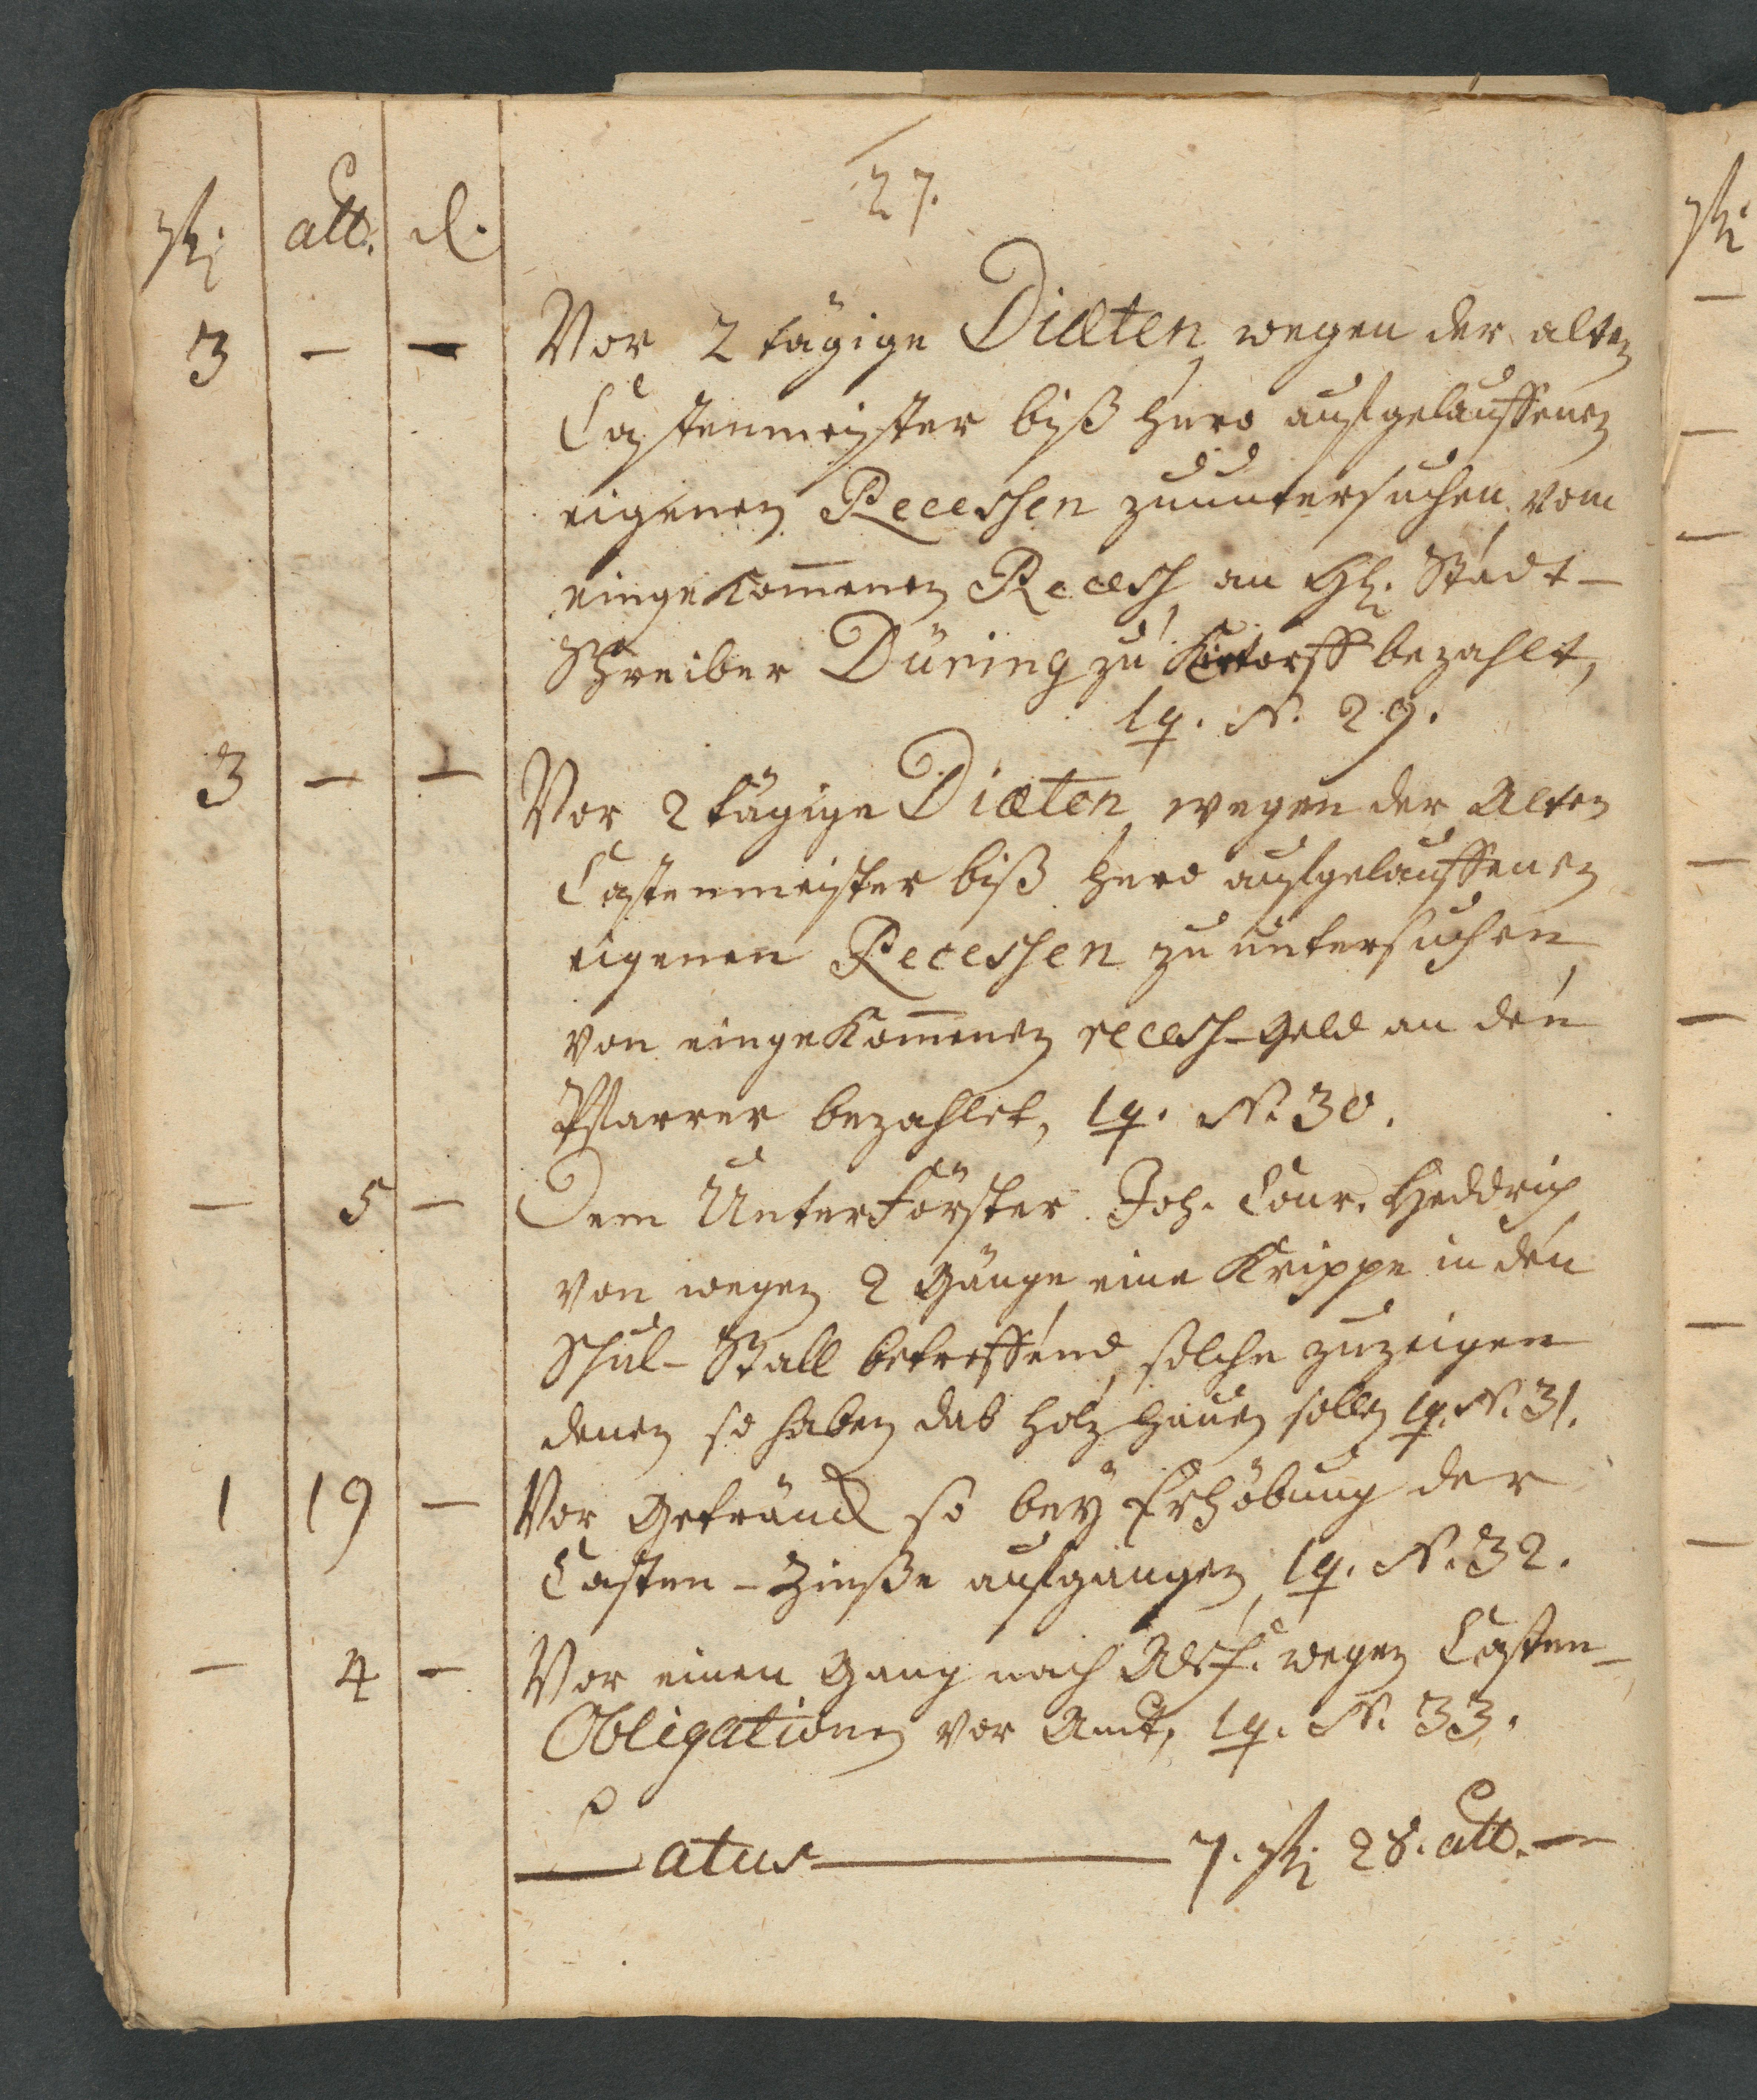 27.
rthl. alb. d.
3 — — Vor 2 tägige Diæten wegen der alten
Castenmeister biß hero aufgelauffenen
eigenen Recessen zuuntersuchen vom
eingekom̄enen Recess an H. Stadt-
Schreiber Düring zu Kirtorff bezahlt,
lq. N. 29.
3 — — Vor 2 tägige Diæten wegen der Alten
Castenmeister biß hero aufgelauffenen
eigenen Recessen zu untersuchen
von eingekom̄enen recess-Geld an den
Pfarrer bezahlet, lq. N. 30.
— 5 — Dem Unterförster Joh. Conr. Heddrich
von wegen 2 Gänge eine Krippe in den
Schul-Stall betreffend, solche zuzeigen
denen so haben das holz hauen sollen lq. N. 31.
1 19 — Vor Getränck so beÿ Erhöbung der
Casten-Zinße aufgangen lq. N. 32.
— 4 — Vor einen Gang nach Alsf. wegen Casten-
Obligationen vor Amt, lq. N. 33.
Latus — 7. rthl. 28. alb. —